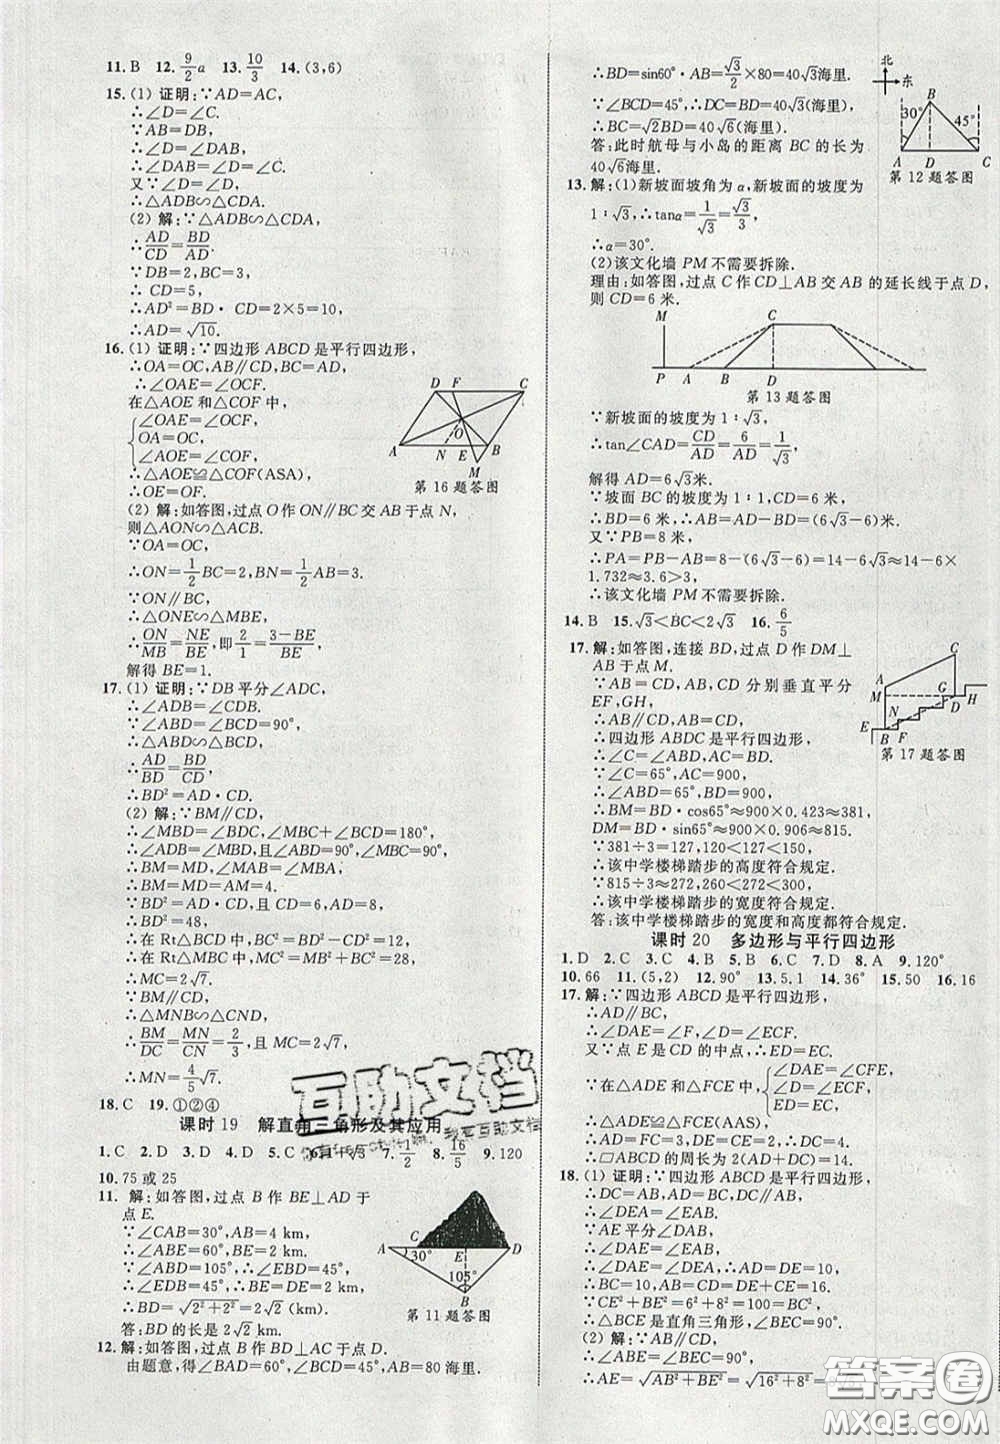 11.B 12.9/2a 13.10/3 14.(3,6)
15.(1) 证明:∵AD=AC,
∴∠D=∠C.
∵AB=DB,
∴∠D=∠DAB,
∴∠DAB=∠D=∠C.
又∵∠D=∠D,
∴△ADB∽△CDA.
(2) 解:∵△ADB∽△CDA,
∴AD/CD=BD/AD.
∵DB=2,BC=3,
∴CD=5,
∴AD²=BD·CD=2×5=10,
∴AD=√10.
16.(1) 证明:∵四边形 ABCD是平行四边形,
∴OA=OC,AB∥CD,BC=AD,
∴∠OAE=∠OCF.
在△AOE 和△COF 中,
∠OAE=∠OCF,
OA=OC,
∠AOE=∠COF,
∴△AOE≌△COF(ASA),
∴OE=OF.
D F C O A N E B M
第16题答图
(2) 解:如答图,过点O作ON∥BC交AB于点N,
则△AON∽△ACB.
∵OA=OC,
∴ON=1/2BC=2,BN=1/2AB=3.
∵ON∥BC,
∴△ONE∽△MBE,
∴ON/MB=NE/BE,即2/1=3-BE/BE,
解得 BE=1.
17.(1) 证明:∵DB平分∠ADC,
∴∠ADB=∠CDB.
∵∠ABD=∠BCD=90°,
∴△ABD∽△BCD,
∴AD/BD=BD/CD,
∴BD²=AD·CD.
(2) 解:∵BM∥CD,
∴∠MBD=∠BDC,∠MBC+∠BCD=180°,
∴∠ADB=∠MBD,且∠ABD=90°,∠MBC=90°,
∴BM=MD,∠MAB=∠MBA,
∴BM=MD=AM=4.
∵BD²=AD·CD,且CD=6,AD=8,
∴BD²=48,
∴在 Rt△BCD中,BC²=BD²-CD²=12,
∴在 Rt△MBC中,MC²=MB²+BC²=28,
∴MC=2√7.
∵BM∥CD,
∴△MNB∽△CND,
∴BM/DC=MN/CN=2/3,且 MC=2√7,
∴MN=4/5√7.
18.C 19.①②④
课时19 解直角三角形及其应用
1.C 2.D 3.D 4.D 5.C 7.1/2 8.16/5 9.120
10.75 或 25
11. 解:如答图,过点 B 作 BE⊥AD 于
点 E.
∵∠CAB=30°,AB=4 km,
∴∠ABE=60°,BE=2 km.
∵∠ABD=105°,∴∠EBD=45°,
∴∠EDB=45°,∴BE=DE=2 km,
∴BD=√2²+2²=2√2(km).
答:BD的长是2√2 km.
A C E D 30° 105° B
第11题答图
12. 解:如答图,过点 B 作 BD⊥AC于点 D.
由题意,得∠BAD=60°,∠BCD=45°,AB=80 海里.
∴BD=sin60°·AB=√3/2×80=40√3海里.
∵∠BCD=45°,∴DC=BD=40√3(海里),
∴BC=√2BD=40√6(海里).
答:此时航母与小岛的距离 BC的长为
40√6海里.
北 东 B 30° 45° A D C
第12题答图
13. 解:(1)新坡面坡角为α,新坡面的坡度为
1∶√3,∴tanα=1/√3=√3/3,
∴α=30°.
(2)该文化墙 PM不需要拆除.
理由:如答图,过点 C 作 CD⊥AB 交 AB 的延长线于点 D,
则 CD=6 米.
M C P A B D
第13题答图
∵新坡面的坡度为 1∶√3,
∴tan∠CAD=CD/AD=6/AD=1/√3,
解得 AD=6√3米.
∵坡面 BC的坡度为 1∶1,CD=6 米,
∴BD=6 米,∴AB=AD-BD=(6√3-6)米.
又∵PB=8 米,
∴PA=PB-AB=8-(6√3-6)=14-6√3≈14-6×
1.732≈3.6>3,
∴该文化墙 PM不需要拆除.
14.B 15.√3<BC<2√3 16.6/5
17. 解:如答图,连接 BD,过点 D 作 DM⊥
AB 于点 M.
∵AB=CD,AB,CD 分别垂直平分
EF,GH,
∴AB∥CD,
∴四边形 ABDC是平行四边形,
∴∠C=∠ABD,AC=BD.
∵∠C=65°,AC=900,
∴∠ABD=65°,BD=900,
∴BM=BD·cos65°≈900×0.423≈381,
DM=BD·sin65°≈900×0.906≈815.
∵381÷3=127,120<127<150,
∴该中学楼梯踏步的高度符合规定.
∵815÷3≈272,260<272<300,
∴该中学楼梯踏步的宽度符合规定.
答:该中学楼梯踏步的宽度和高度都符合规定.
C A M G D H N E B F
第17题答图
课时20 多边形与平行四边形
1.D 2.D 3.C 4.B 5.B 6.C 7.D 8.A 9.120°
10.66 11.(5,2) 12.90° 13.5.1 14.36° 15.50 16.16
17. 解:∵四边形 ABCD是平行四边形,
∴AD∥BC,
∴∠DAE=∠F,∠D=∠ECF.
又∵点 E是 CD 的中点,∴ED=EC.
∵在△ADE 和△FCE 中,
∠DEA=∠CFE,
∠DAE=∠F,
DE=CE,
∴△ADE≌△FCE(AAS),
∴AD=FC=3,DC=2DE=4,
∴▱ABCD的周长为 2(AD+DC)=14.
18.(1) 证明:∵四边形 ABCD是平行四边形,
∴DC=AB=10,DC∥AB,AD=BC,
∴∠DEA=∠EAB.
∵AE平分∠DAB,∴∠DAE=∠EAB,
∴∠DAE=∠DEA,∴AD=DE=10,
∴BC=10,AB=CD=DE+CE=16.
∵CE²+BE²=6²+8²=10²=BC²,
∴△BCE是直角三角形,∠BEC=90°.
(2) 解:∵AB∥CD,
∴∠ABE=∠BEC=90°,
∴AE=√AB²+BE²=√16²+8²=
互助文档
答案圈
MXQE.COM